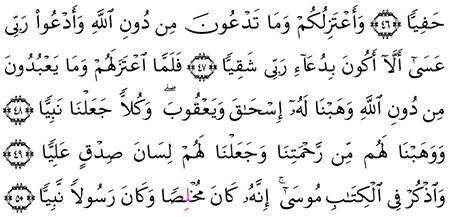 حَفِيًّا ﴿٤٦﴾ وَأَعْتَزِلُكُمْ وَمَا تَدْعُونَ مِن دُونِ ٱللَّهِ وَأَدْعُواْ رَبِّى
عَسَىٰٓ أَلَّآ أَكُونَ بِدُعَآءِ رَبِّى شَقِيًّا ﴿٤٧﴾ فَلَمَّا ٱعْتَزَلَهُمْ وَمَا يَعْبُدُونَ
مِن دُونِ ٱللَّهِ وَهَبْنَا لَهُۥٓ إِسْحَـٰقَ وَيَعْقُوبَ ۖ وَكُلاًّ جَعَلْنَا نَبِيًّا ﴿٤٨﴾
وَوَهَبْنَا لَهُم مِّن رَّحْمَتِنَا وَجَعَلْنَا لَهُمْ لِسَانَ صِدْقٍ عَلِيًّا ﴿٤٩﴾
وَٱذْكُرْ فِى ٱلْكِتَـٰبِ مُوسَىٰٓ ۚ إِنَّهُۥ كَانَ مُخْلِصًا وَكَانَ رَسُولاً نَّبِيًّا ﴿٥٠﴾